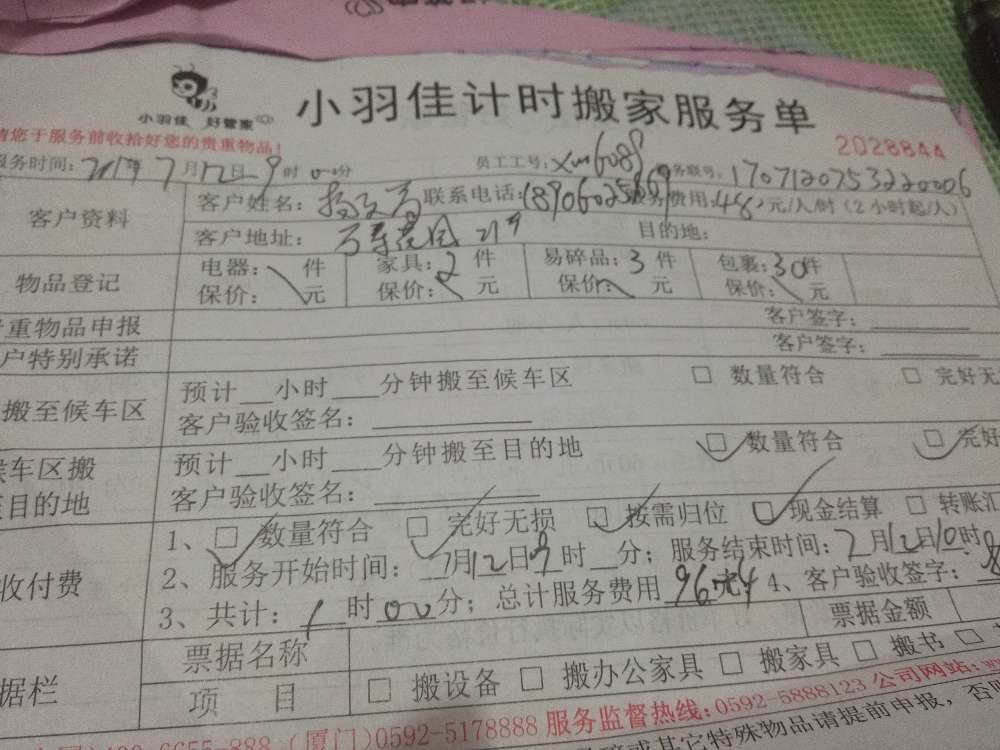 小羽佳 好管家
小羽佳计时搬家服务单
请您于服务前收拾好您的贵重物品!
2028844
服务时间:2017年7月12日9时00分 员工工号:xm6088 务联号:1707120753220006
客户资料
客户姓名: 联系电话: 费用:48元/人/时(2小时起/人)
客户地址:万寿花园 目的地:
物品登记
电器: 件 家具:2件 易碎品:3件 包裹:30件
保价: 元 保价: 元 保价: 元 保价: 元
重物品申报 客户签字:
户特别承诺 客户签字:
搬至候车区
预计 小时 分钟搬至候车区 数量符合 完好无
客户验收签名:
候车区搬
目的地
预计 小时 分钟搬至目的地 数量符合 完好
客户验收签名:
收付费
1、 数量符合 完好无损 按需归位 现金结算 转账汇
2、服务开始时间:7月12日9时 分;服务结束时间:7月12日10时
3、共计:1时00分;总计服务费用96元 4、客户验收签字:
据栏
票据名称 票据金额
项 目 搬设备 搬办公家具 搬家具 搬书
400-6655-888 (厦门)0592-5178888 服务监督热线:0592-5888123 公司网站:
或其它特殊物品请提前申报,否